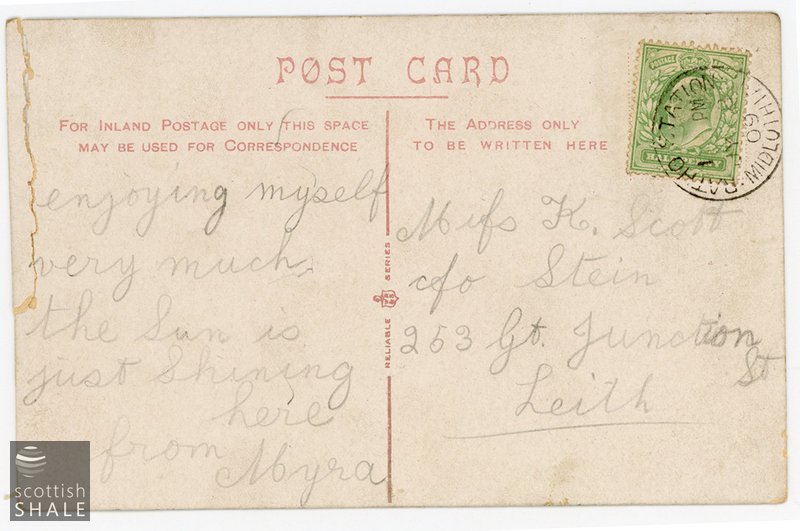 POST CARD
FOR INLAND POSTAGE ONLY THIS SPACE
MAY BE USED FOR CORRESPONDENCE
THE ADDRESS ONLY
TO BE WRITTEN HERE
POSTAGE
HALFPENNY
RATHO STATION
MIDLOTHIAN
enjoying myself
very much,
the Sun is
just Shining
here
from
Myra
RELIABLE SERIES
Mifs K. Scott
c/o Stein
253 Gt. Junction
St
Leith
scottish
SHALE